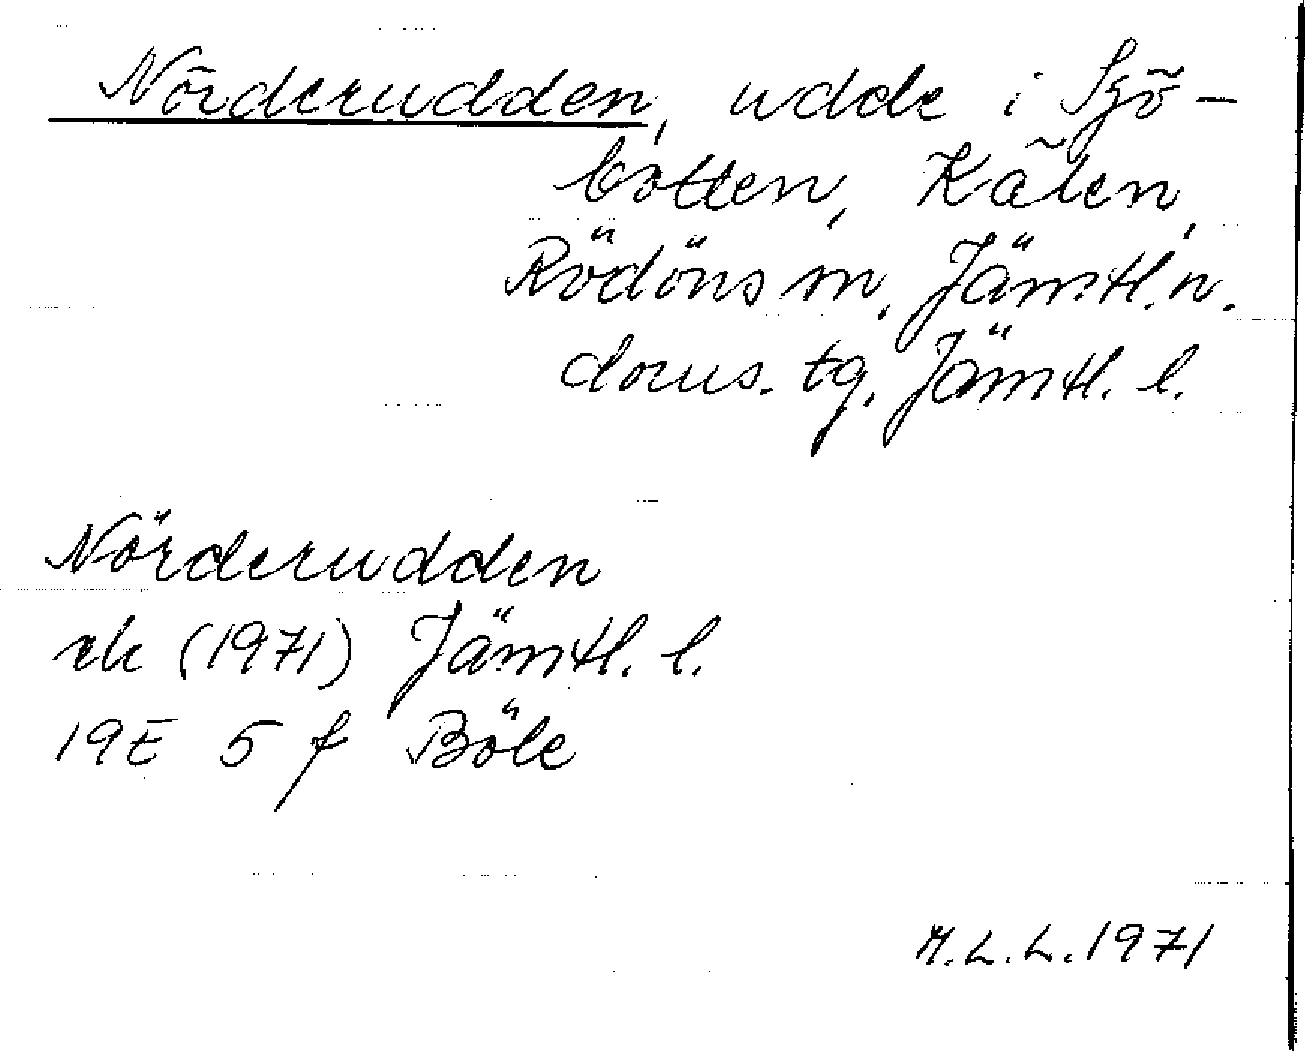 Nörderudden, udde i Sjö-
botten, Kälen,
Rödöns sn, Jämtl. n.
doms. tg. Jämtl. l.
Nörderudden
rk (1971) Jämtl. l.
19E 5 f Böle
M.L.L. 1971